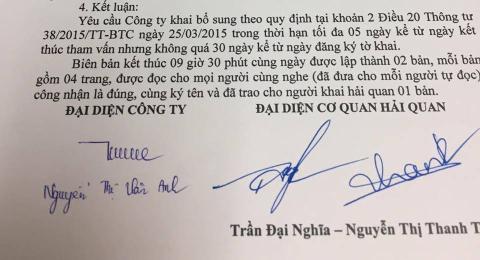 4. Kết luận:
Yêu cầu Công ty khai bổ sung theo quy định tại khoản 2 Điều 20 Thông tư
38/2015/TT-BTC ngày 25/03/2015 trong thời hạn tối đa 05 ngày kể từ ngày kết
thúc tham vấn nhưng không quá 30 ngày kể từ ngày đăng ký tờ khai.
Biên bản kết thúc 09 giờ 30 phút cùng ngày được lập thành 02 bản, mỗi bản
gồm 04 trang, được đọc cho mọi người cùng nghe (đã đưa cho mỗi người tự đọc)
công nhận là đúng, cùng ký tên và đã trao cho người khai hải quan 01 bản.
ĐẠI DIỆN CÔNG TY ĐẠI DIỆN CƠ QUAN HẢI QUAN
Thanh
Nguyễn Thị Vân Anh
Trần Đại Nghĩa – Nguyễn Thị Thanh T